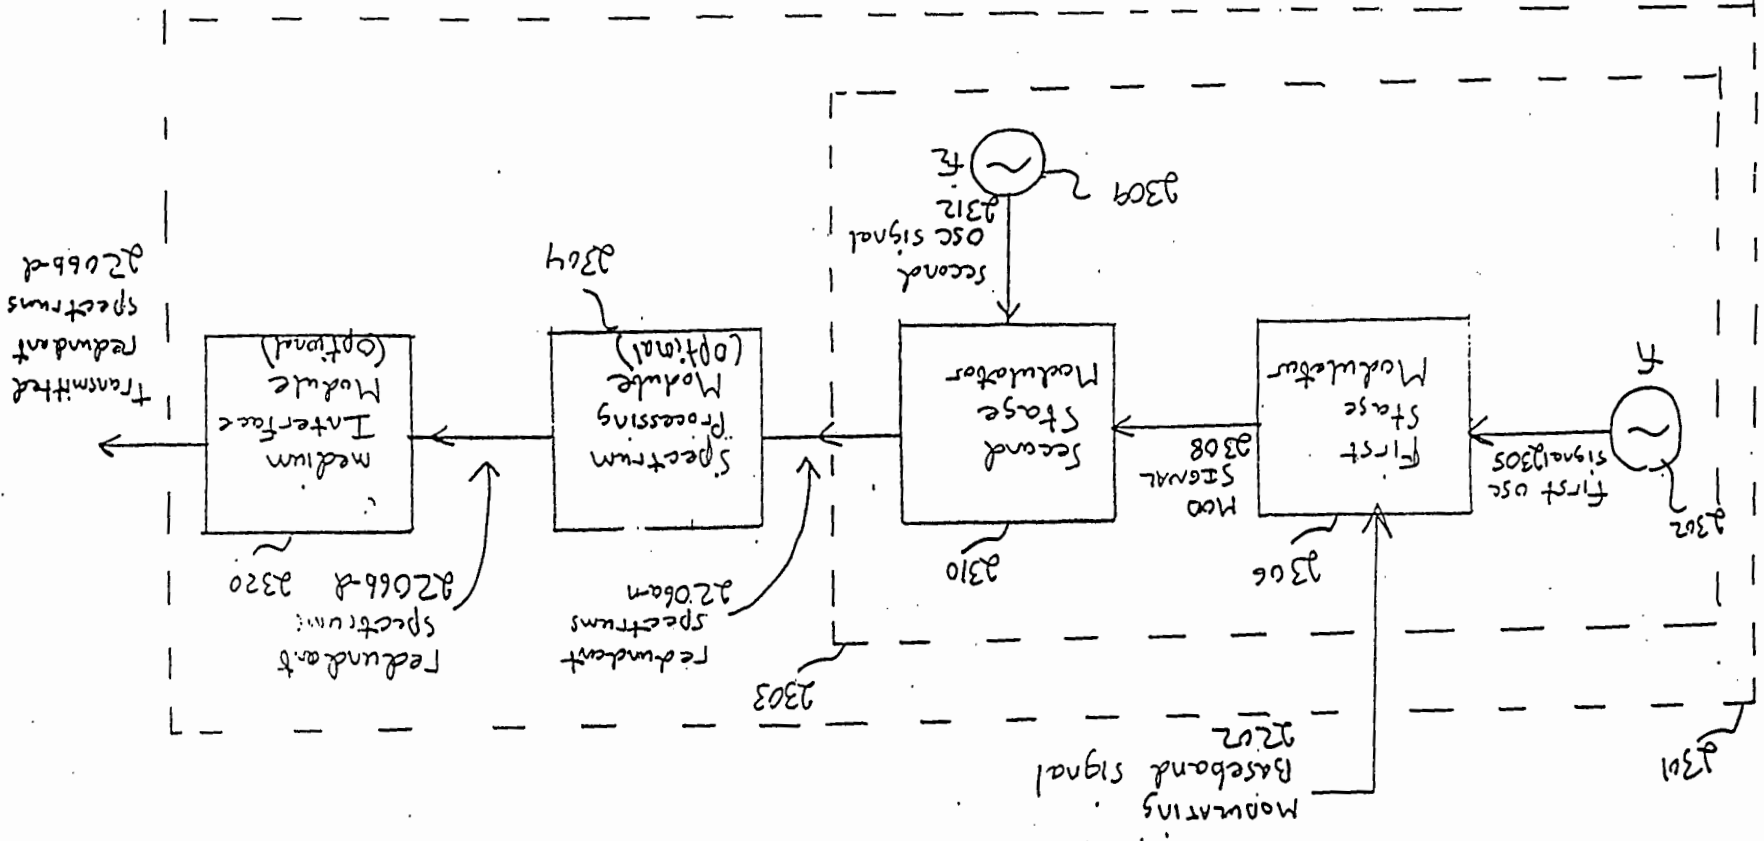 2301
Modulating
Baseband signal
2202
2303
2302
f1
First osc
signal 2305
2306
First
Stage
Modulator
MOD
SIGNAL
2308
2310
Second
Stage
Modulator
second
osc signal
2312
2309
f2
redundant
spectrums
2206a-n
Spectrum
Processing
Module
(optional)
2304
redundant
spectrums
2206b-d
2320
medium
Interface
Module
(optional)
Transmitted
redundant
spectrums
2206b-d